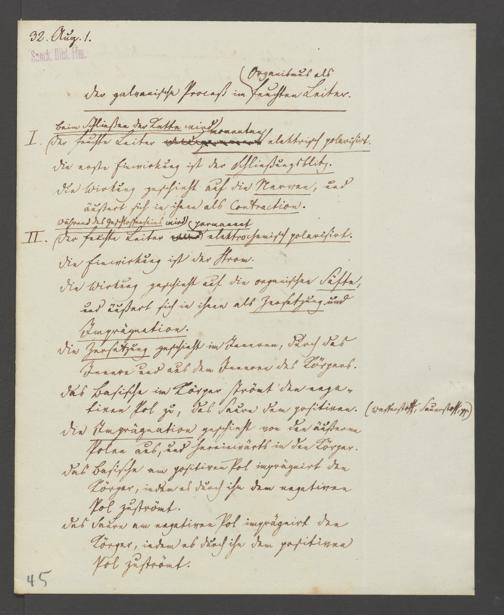 32. Aug. 1.
Senck. Bibl. Ffm.
(Organismus als
der galvanische Proceß im feuchten Leiter.
beim Schließen der Kette wird momentan
I. Der feuchte Leiter elektrisch polarisirt.
die erste Einwirkung ist der Schließungsblitz.
die Wirkung geschieht auf die Nerven, und
äußert sich in ihnen als Contraction.
während des Geschlossenseins wird permanent
II. Der feuchte Leiter elektrochemisch polarisirt.
die Einwirkung ist der Strom.
die Wirkung geschieht auf die organischen Säfte,
und äußert sich in ihnen als Zersetzung und
Imprägnation.
die Zersetzung geschieht im Inneren, durch das
Innere und aus dem Inneren des Körpers.
das Basische im Körper strömt dem nega-
tiven Pol zu, das Saure dem positiven. (Wasserstoff, Sauerstoff)
die Imprägnation geschieht von den äußeren
Polen aus, und hereinwärts in den Körper.
das Basische am positiven Pol imprägnirt den
Körper, indem es durch ihn dem negativen
Pol zuströmt.
das Saure am negativen Pol imprägnirt den
Körper, indem es durch ihn dem positiven
Pol zuströmt.
45